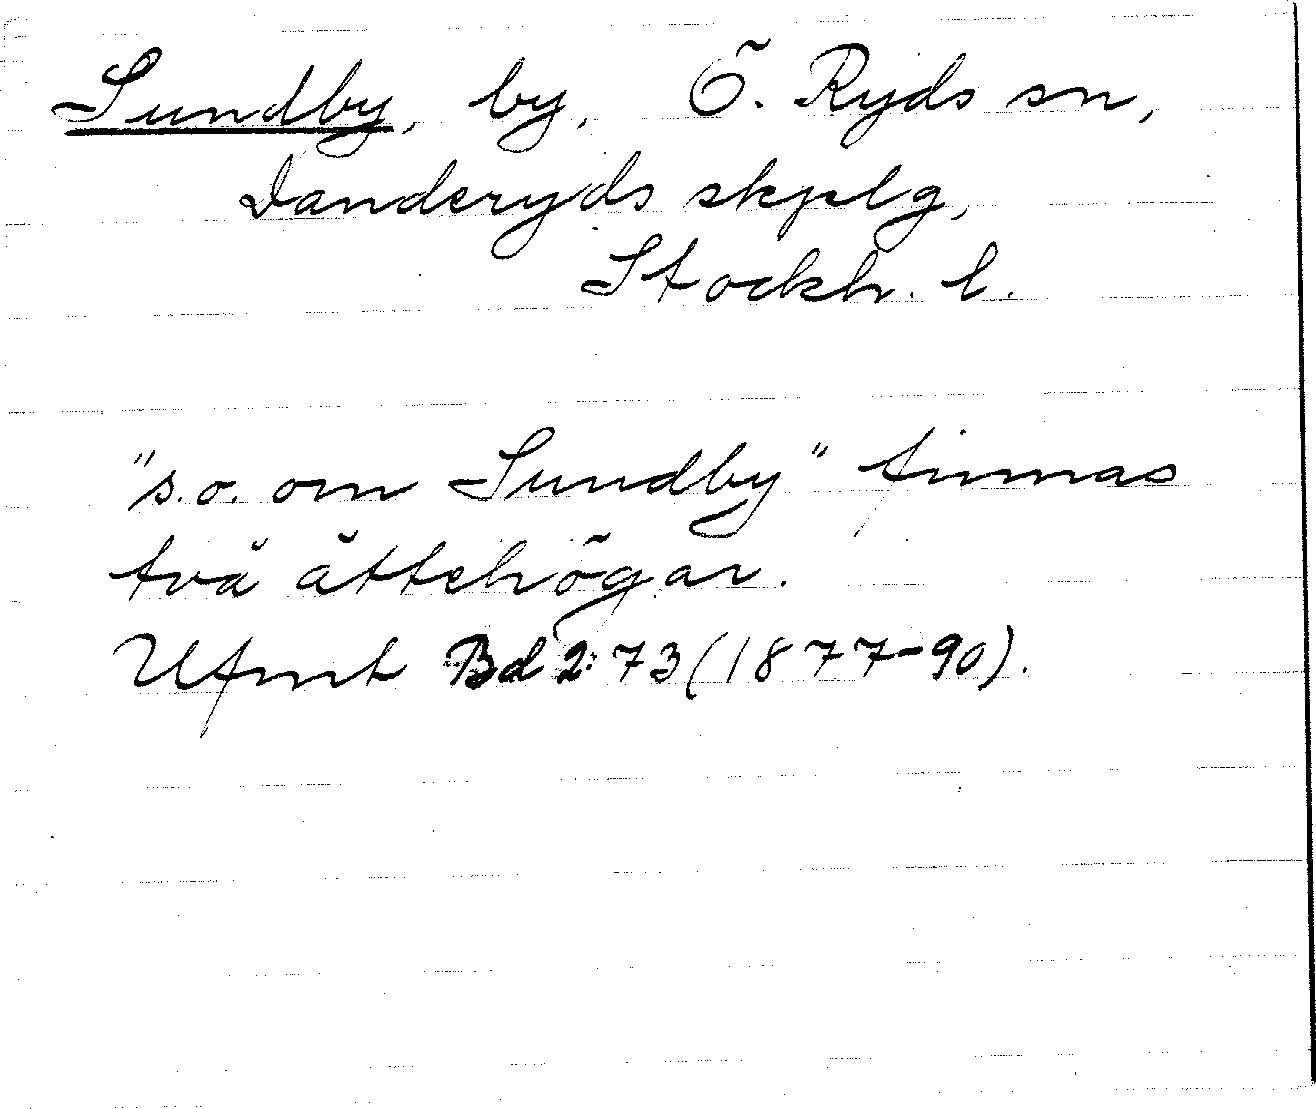 Sundby, by, Ö. Ryds sn,
Danderyds skplg,
Stockh. l.
"s.o. om Sundby" finnas
två ättehögar.
Ufmt Bd 2:73 (1877-90).